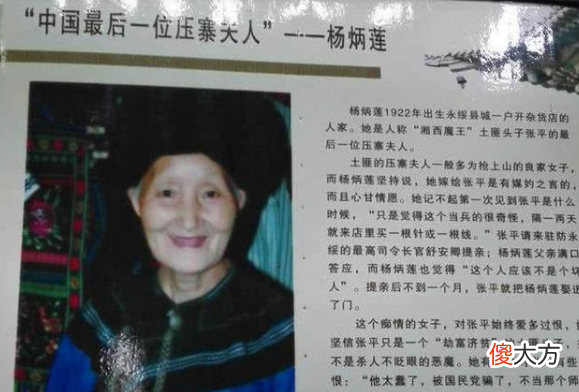 “中国最后一位压寨夫人”——杨炳莲
杨炳莲1922年出生永绥县城一户开杂货店的
人家。她是人称“湘西魔王”土匪头子张平的最
后一位压寨夫人。
土匪的压寨夫人一般多为抢上山的良家女子,
而杨炳莲坚持说，她嫁给张平是有媒妁之言的,
而且心甘情愿。她记不起第一次见到张平是什么
时候，“只是觉得这个当兵的很奇怪，隔一两天
就来店里买一根针或一根线。”张平请来驻防永
绥的最高司令长官舒安卿提亲；杨炳莲父亲满口
答应，而杨炳莲也觉得“这个人应该不是个坏
人”。提亲后不到一个月，张平就把杨炳莲娶进
了门。
这个痴情的女子，对张平始终爱多过恨，
坚信张平只是一个“劫富济贫
不是杀人不眨眼的恶魔。她有
恨：“他太蠢了，被国民党骗了，不当那个
傻大方